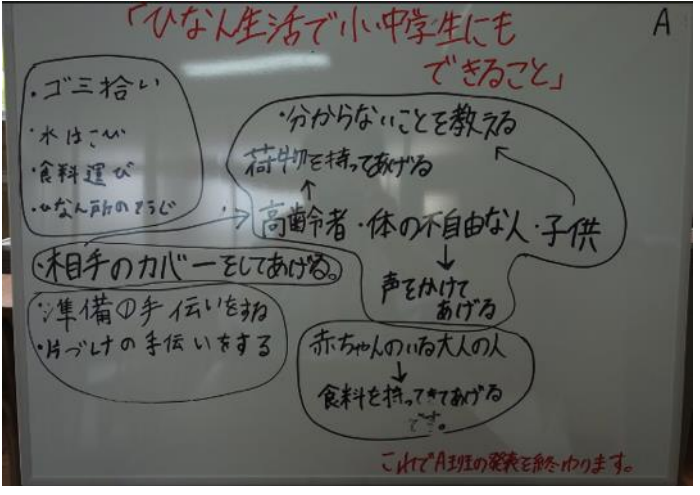 「ひなん生活で小中学生にも
できること」
A
・ゴミ拾い
・水はこび
・食料運び
・ひなん所のそうじ
・分からないことを教える
荷物を持ってあげる
↑
高齢者・体の不自由な人・子供
↓
声をかけて
あげる
・相手のカバーをしてあげる。
・準備の手伝いをする
・片づけの手伝いをする
赤ちゃんのいる大人の人
↓
食料を持ってきてあげる
です。
これでA班の発表を終わります。